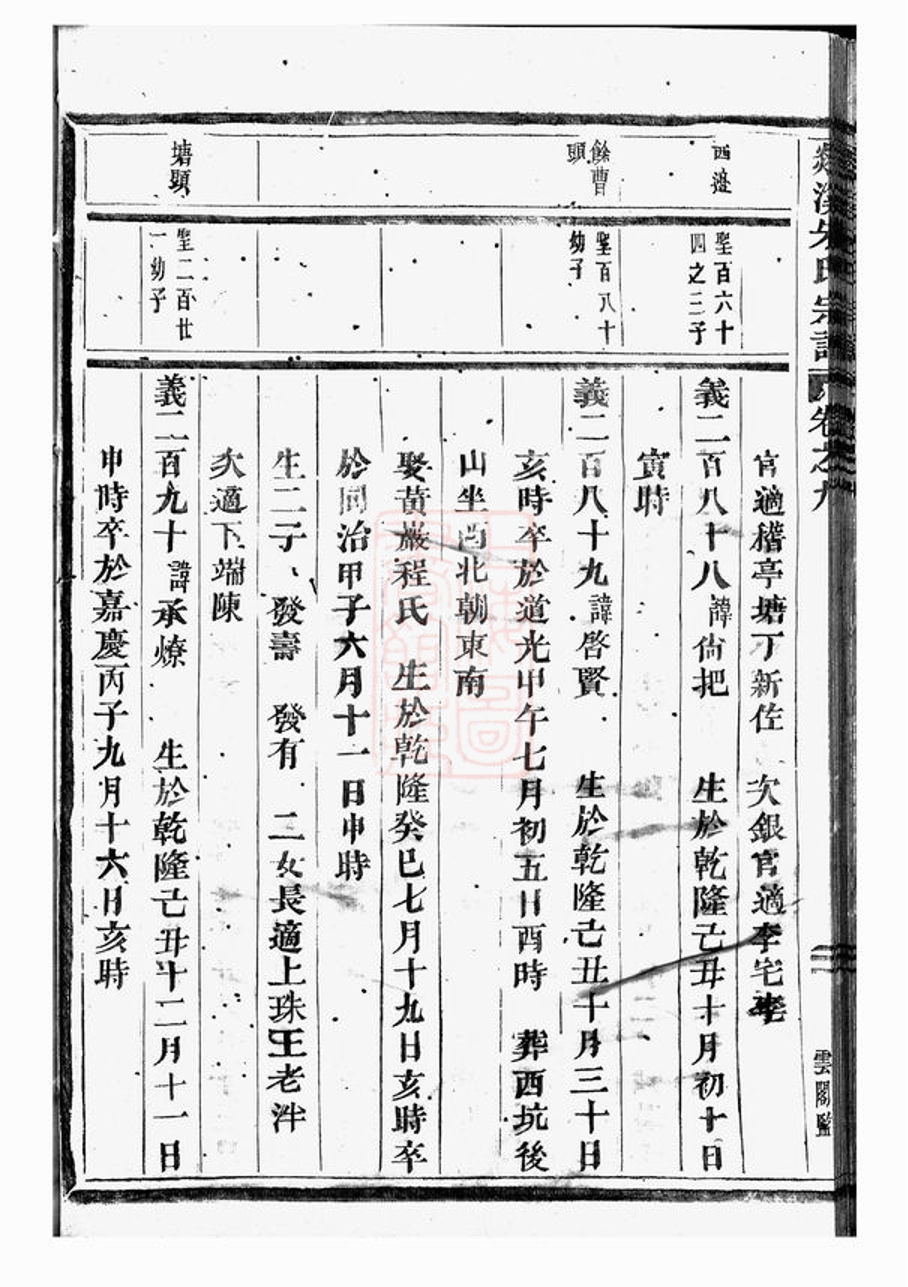 溪朱氏宗譜
卷之九
雲閣監
官適稽亭塘丁新佐 次銀官適李宅李
西邊
聖百六十四之三子
義二百八十八諱尙把 生於乾隆己丑十月初十日
寅時
餘曹頭
聖百八十幼子
義二百八十九諱啓賢 生於乾隆己丑十月三十日
亥時卒於道光甲午七月初五日酉時 葬西坑後
山坐西北朝東南
娶黃巖程氏 生於乾隆癸巳七月十九日亥時卒
於同治甲子六月十一日申時
生二子 發壽 發有 二女長適上珠王老泮
次適下端陳
塘頭
聖二百廿一幼子
義二百九十諱承燎 生於乾隆己丑十二月十一日
申時卒於嘉慶丙子九月十六日亥時